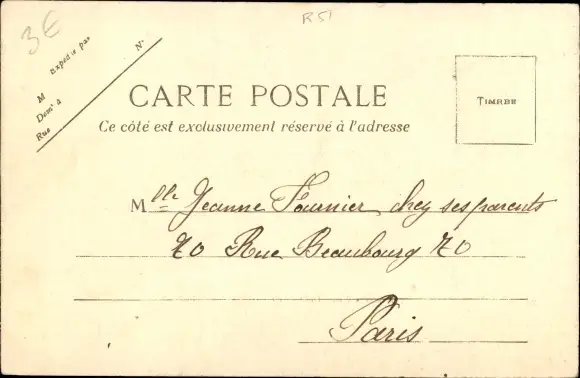 3€
R51
Expédié par
M
Demt à
Rue
N°
CARTE POSTALE
Ce côté est exclusivement réservé à l'adresse
TIMBRE
Mlle Jeanne Fournier chez ses parents
70 Rue Beaubourg 70
Paris